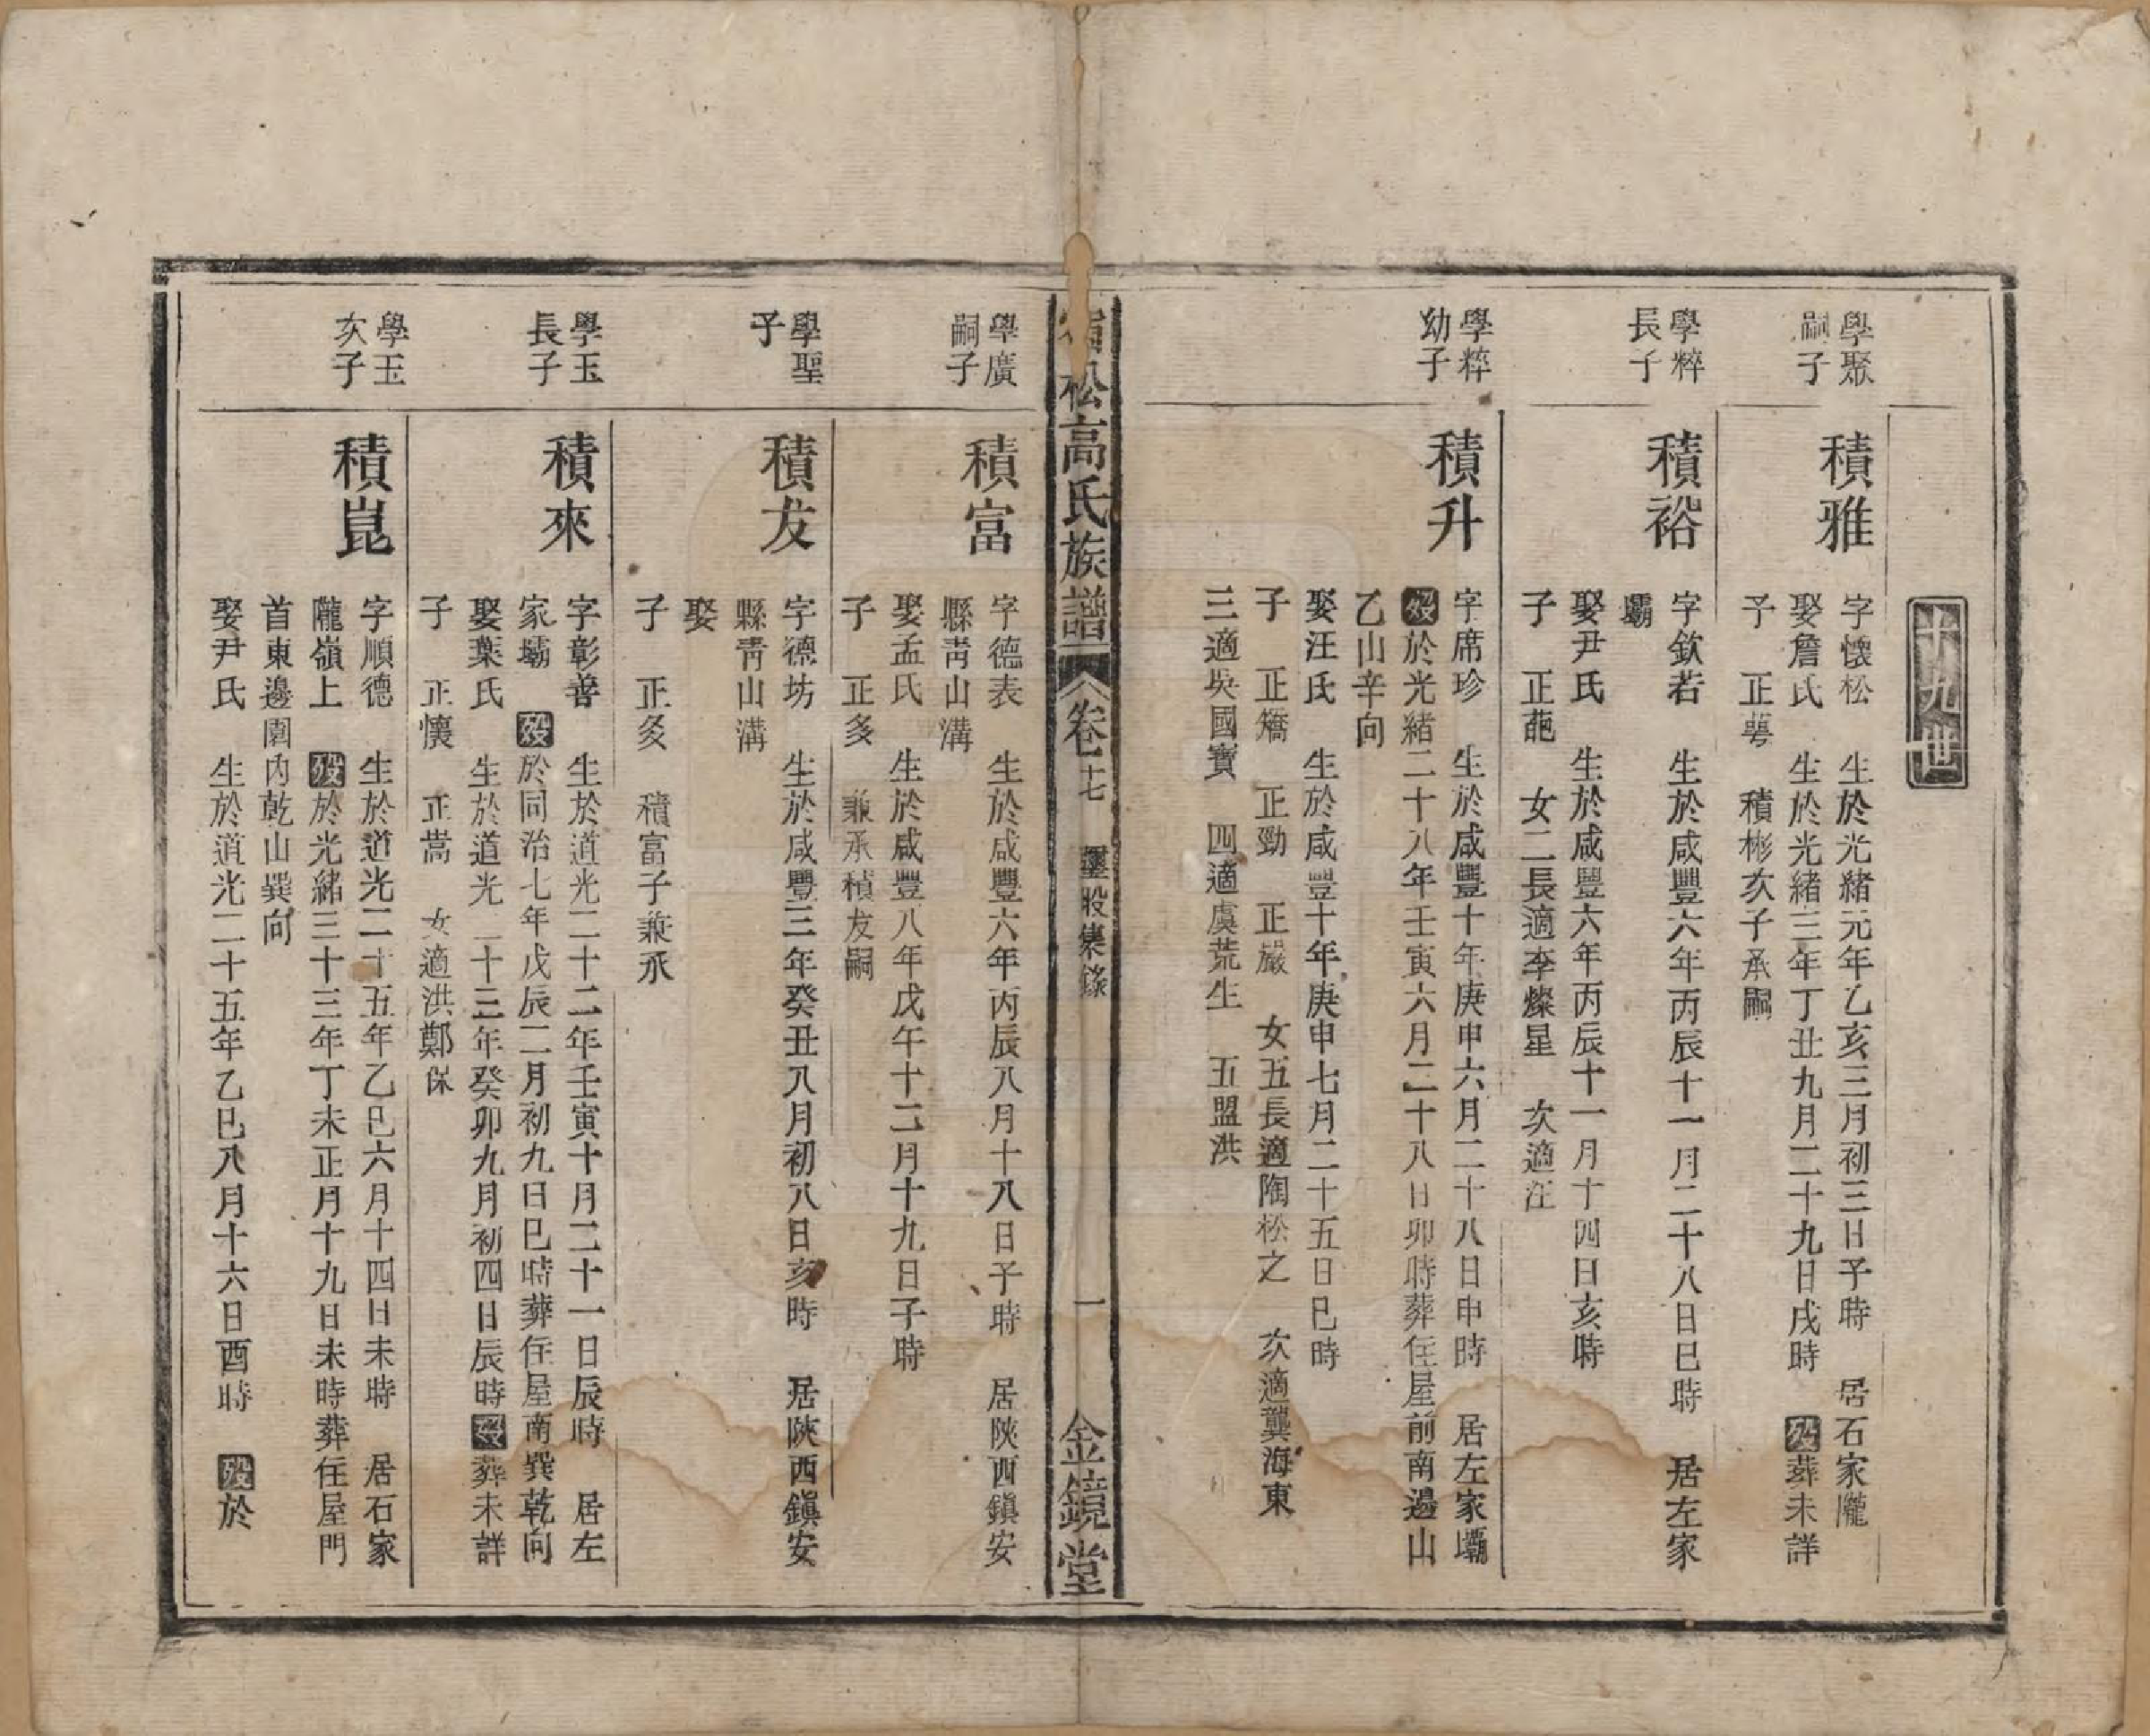 十九世
學聚
嗣子
積雅
字懷松　生於光緒元年乙亥三月初三日子時　居石家隴
娶詹氏　生於光緒三年丁丑九月二十九日戌時　歿葬未詳
子　正萼　積彬次子承嗣
學粹
長子
積裕
字欽若　生於咸豐六年丙辰十一月二十八日巳時　居左家
壩
娶尹氏　生於咸豐六年丙辰十一月十四日亥時
子　正葩　女二長適李燦星　次適汪
學粹
幼子
積升
字席珍　生於咸豐十年庚申六月二十八日申時　居左家壩
歿於光緒二十八年壬寅六月二十八日卯時葬住屋前南邊山
乙山辛向
娶汪氏　生於咸豐十年庚申七月二十五日巳時
子　正矯　正勁　正巖　女五長適陶松之　次適龔海東
三適吳國寶　四適虞荒生　五盟洪
宿松高氏族譜　卷十七　璽股集錄　一　金鏡堂
學廣
嗣子
積富
字德表　生於咸豐六年丙辰八月十八日子時　居陝西鎭安
縣靑山溝
娶孟氏　生於咸豐八年戊午十二月十九日子時
子　正多　兼承積友嗣
學聖
子
積友
字德坊　生於咸豐三年癸丑八月初八日亥時　居陝西鎭安
縣靑山溝
娶
子　正多　積富子兼承
學玉
長子
積來
字彰善　生於道光二十二年壬寅十月二十一日辰時　居左
家壩　歿於同治七年戊辰二月初九日巳時葬住屋南巽乾向
娶葉氏　生於道光二十三年癸卯九月初四日辰時歿葬未詳
子　正懷　正嵩　女適洪鄭保
學玉
次子
積崑
字順德　生於道光二十五年乙巳六月十四日未時　居石家
隴嶺上　歿於光緒三十三年丁未正月十九日未時葬住屋門
首東邊園內乾山巽向
娶尹氏　生於道光二十五年乙巳八月十六日酉時　歿於